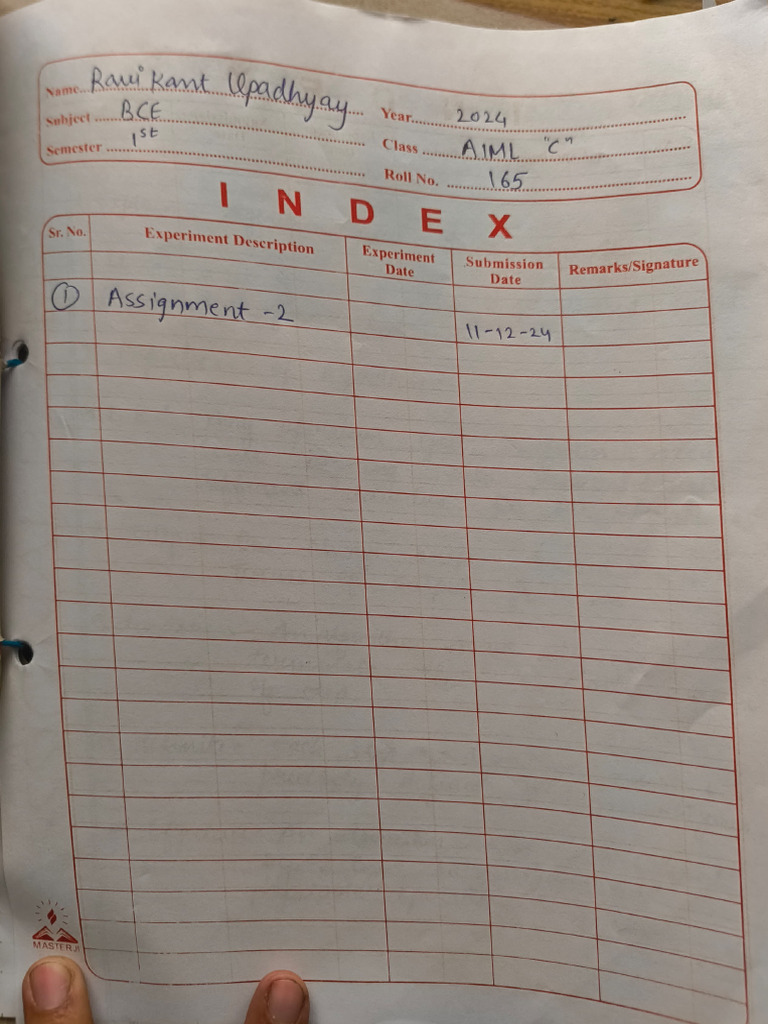 Name.. Ravi Kant Upadhyay
Subject ..... BCE
Semester ... 1st
Year..... 2024
Class ..... AIML "C"
Roll No. ..... 165
INDEX
Sr. No. Experiment Description Experiment Date Submission Date Remarks/Signature
① Assignment -2 11-12-24
MASTER JI